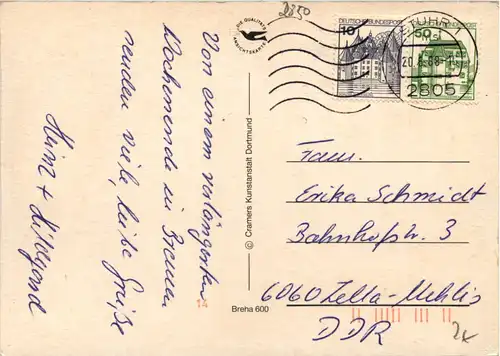 2850
DIE QUALITÄTS
ANSICHTSKARTE
DEUTSCHE BUNDESPOST
10
50
STUHR 1
20.6.88-1
2805
Von einem verlängerten
Wochenende in Bremen
senden viele liebe Grüße
Heinz + Hildegard
© Cramers Kunstanstalt Dortmund
Breha 600
14
Fam.
Erika Schmidt
Bahnhofstr. 3
6060 Zella-Mehlis
DDR